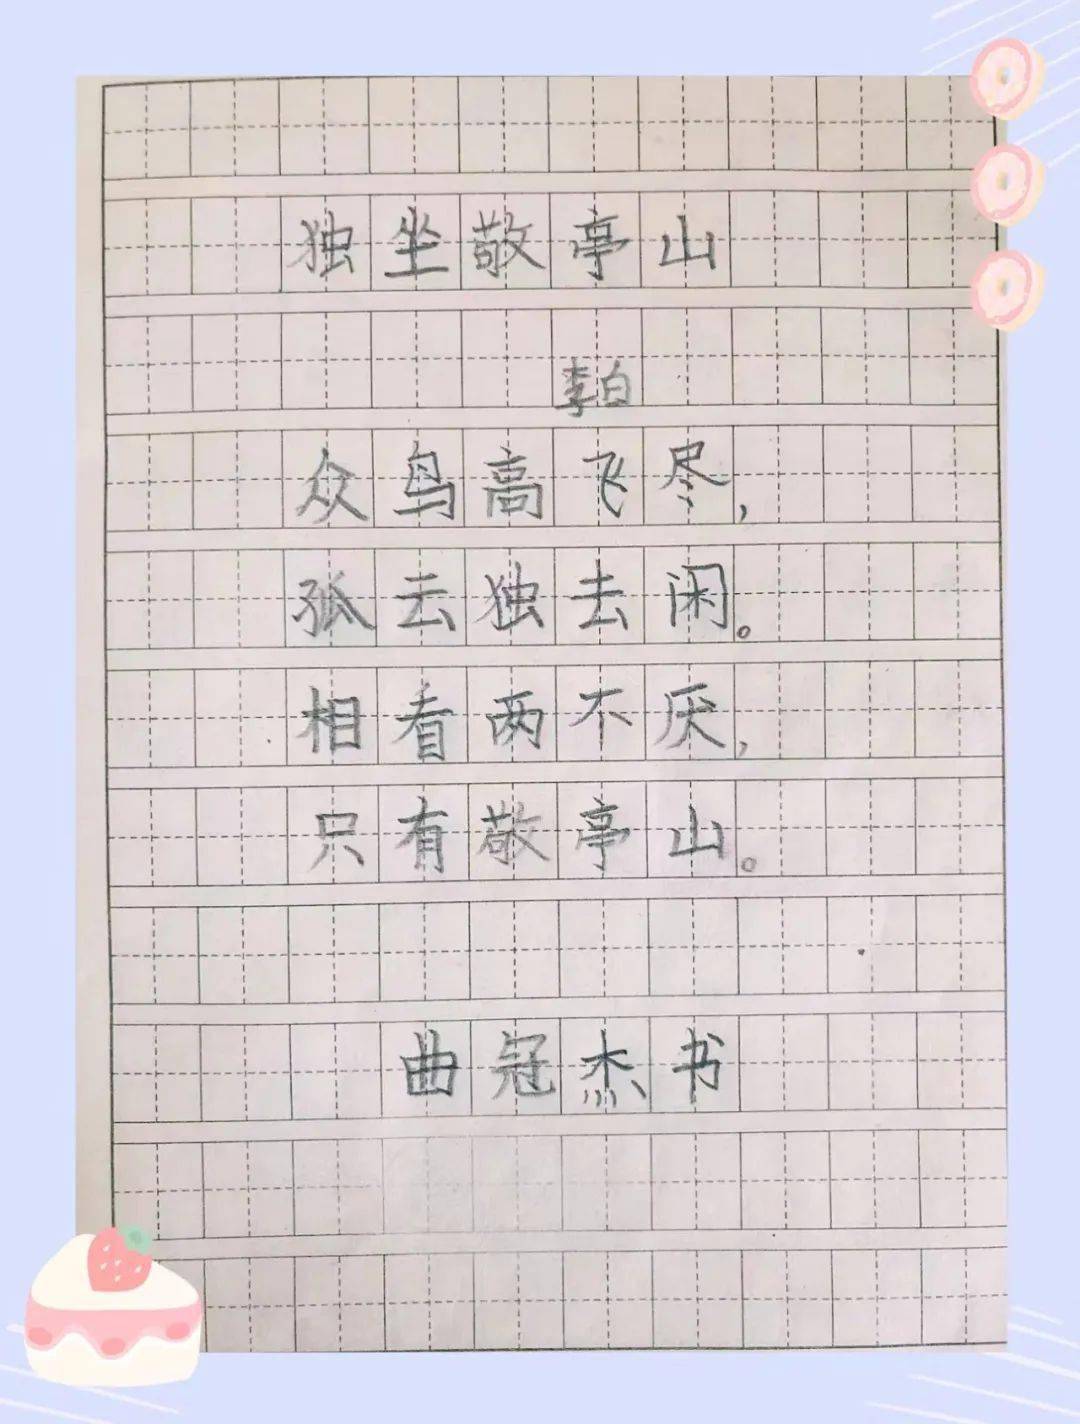 独坐敬亭山
李白
众鸟高飞尽，
孤云独去闲。
相看两不厌，
只有敬亭山。
曲冠杰书